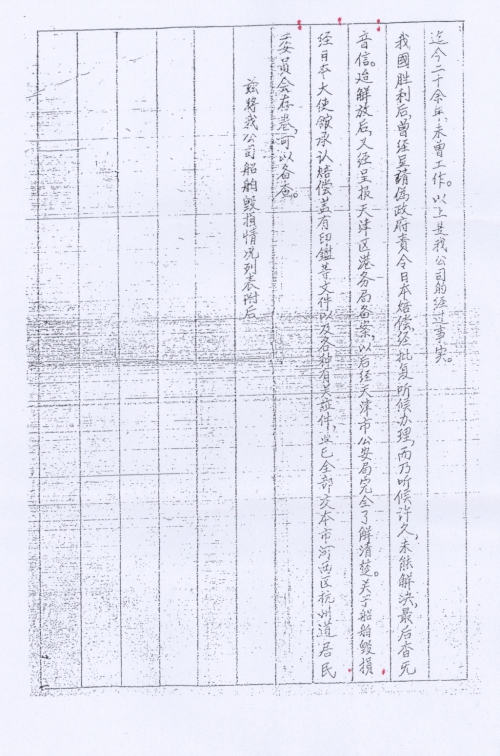 迄今二十余年,未曾工作。以上是我公司的经过事实。
我國胜利后,曾经呈请伪政府责令日本赔偿,经批复听候办理,而乃听候许久,未能解决,最后杳无
音信。迨解放后,又经呈报天津区港务局备案,以后经天津市公安局完全了解清楚。关于船舶毁損
经日本大使馆承认赔偿盖有印鑑等文件以及各种有关証件,业已全部交本市河西区杭州道居民
委员会存卷,可以备查。
兹将我公司船舶毁損情况列表附后